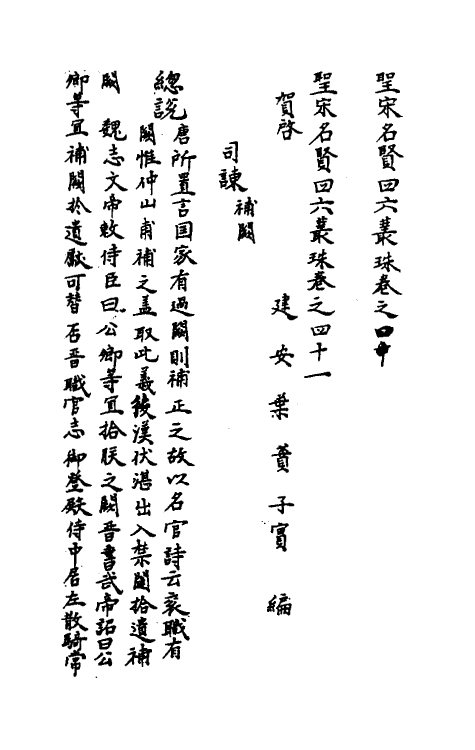 聖宋名賢四六叢珠卷之四十
聖宋名賢四六叢珠卷之四十一
建安葉蕡子實 編
賀啓
司諫補闕
總說唐所置言国家有過闕則補正之故以名官詩云衮職有
闕惟仲山甫補之盖取此義後漢伏湛出入禁闥拾遺補
闕 魏志文帝敕侍臣曰公卿等宜拾朕之闕晋書武帝詔曰公
卿等宜補闕於遺獻可替否晋職官志御登殿侍中居左散騎常